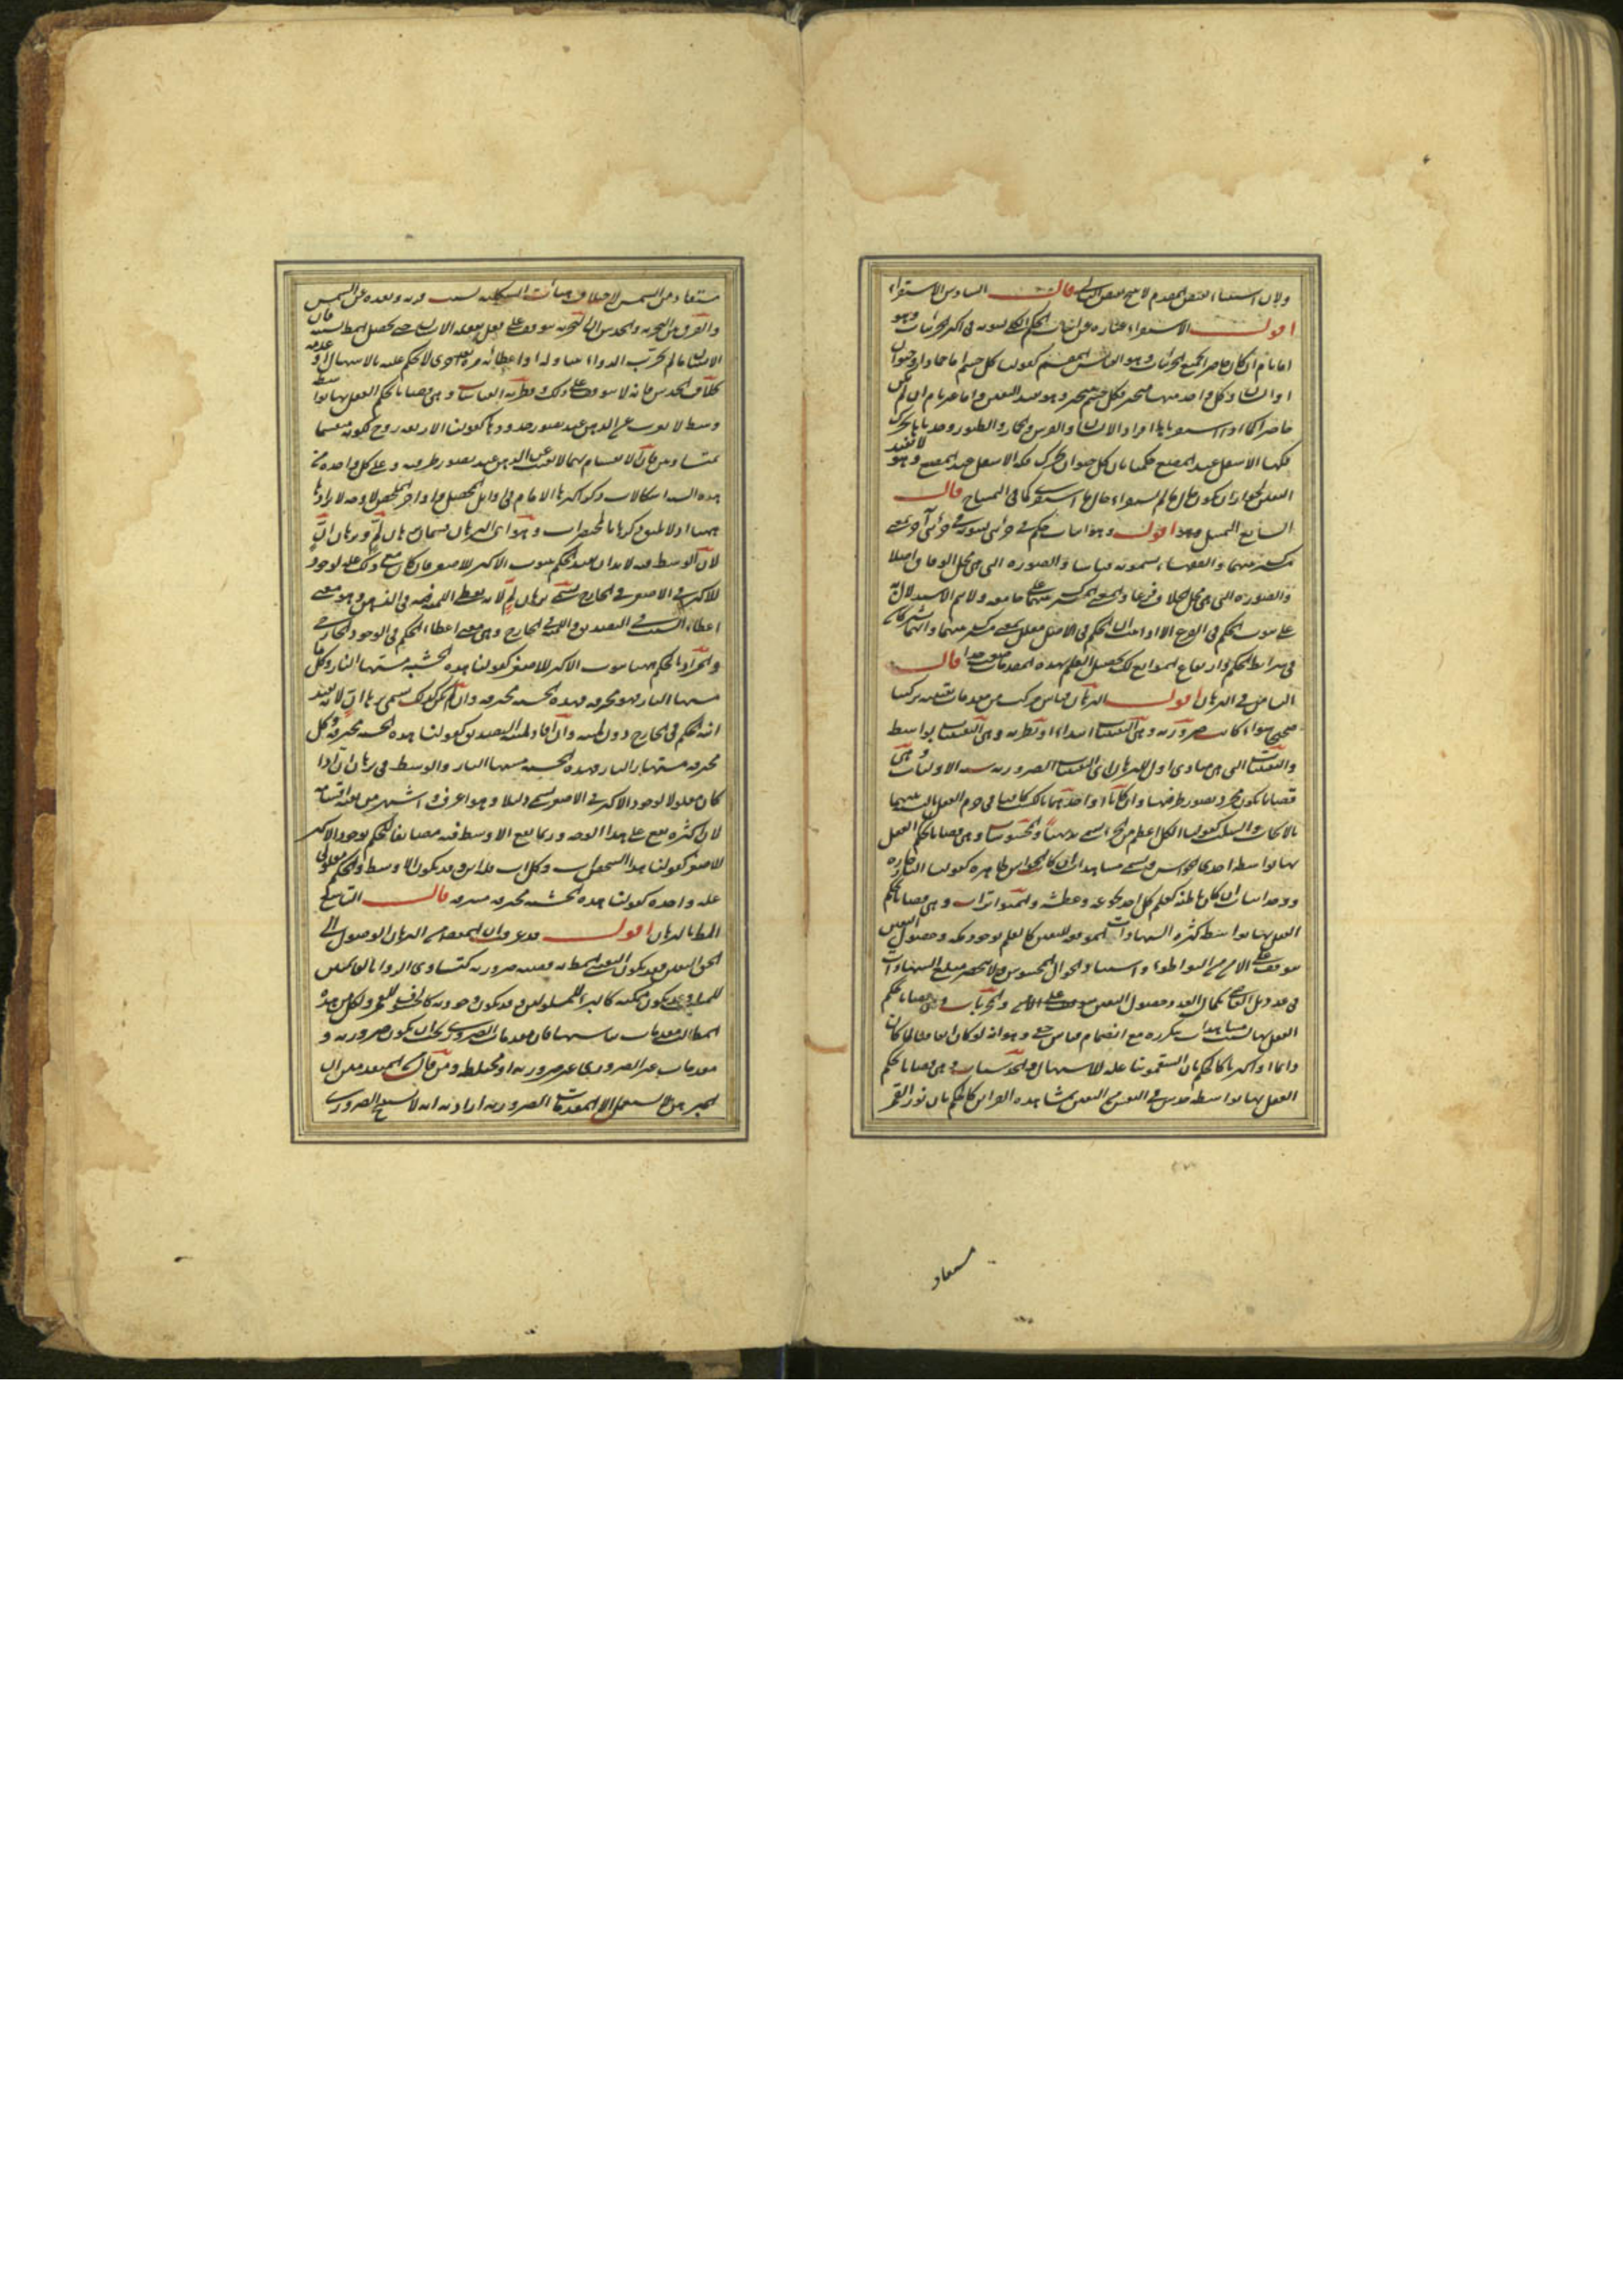 ولان استثناء نقيض المقدم لا ينتج نقيض التالي قال السادس الاستقراء
اقول الاستقراء عبارة عن اثبات الحكم الكلي لثبوته في اكثر الجزئيات وهو
اما تام ان كان حاصرا لجميع الجزئيات وهو القياس المقسم كقولنا كل جسم اما جماد او حيوان
او نبات وكل واحد منها متحيز فكل جسم متحيز وهو يفيد اليقين واما غير تام ان لم يكن
حاصرا كما اذا استقرينا افراد الانسان والفرس والحمار والطيور وجدناها تحرك
فكها الاسفل عند المضغ حكمنا بان كل حيوان يحرك فكه الاسفل عند المضغ وهو لا يفيد
اليقين لجواز ان يكون حال ما لم يستقرأ بخلاف حال ما استقري كما في التمساح قال
السابع التمثيل وهو اقول وهو اثبات حكم في جزئي لثبوته في جزئي آخر لمعنى
مشترك بينهما والفقهاء يسمونه قياسا والصورة التي هي محل الوفاق اصلا
والصورة التي هي محل الخلاف فرعا والمعنى المشترك بينهما علة جامعة ولا يتم الاستدلال به
على ثبوت الحكم في الفرع الا اذا ثبت ان الحكم في الاصل معلل بمعنى مشترك بينهما وانهما يشتركان
في شرائط الحكم وارتفاع الموانع لكن تحصيل العلم بهذه المقدمات صعب جدا قال
الثامن في البرهان اقول البرهان قياس مركب من مقدمات يقينية تركيبا
صحيحا سواء كانت ضرورية وهي اليقينيات ابتداء او نظرية وهي اليقينيات بواسطة
واليقينيات التي هي مبادي اول للبرهان اي اليقينيات الضرورية ستة الاوليات وهي
قضايا يكون مجرد تصور طرفيها وان كانا او احدهما بالكسب كافيا في جزم العقل بالنسبة بينهما
بالايجاب والسلب كقولنا الكل اعظم من الجزء ويسمى بديهيا والمحسوسات وهي قضايا يحكم العقل
بها بواسطة احدى الحواس ويسمى مشاهدات ان كان الحواس ظاهرة كقولنا النار حارة
ووجدانيات ان كان باطنة كعلم كل احد بجوعه وعطشه والمتواترات وهي قضايا يحكم
العقل بها بواسطة كثرة الشهادات الموقعة لليقين كالعلم بوجود مكة وحصول اليقين
يتوقف على الامن من التواطؤ واستناده الى المحسوس ولا ينحصر مبلغ الشهادات
في عدد بل القاضي بكمال العدد حصول اليقين والمجربات وهي قضايا يحكم
العقل بها بسبب مشاهدات متكررة مع انضمام قياس خفي وهو انه لو كان اتفاقيا لما كان
دائما او اكثريا كالحكم بان السقمونيا علة للاسهال والحدسيات وهي قضايا يحكم
العقل بها بواسطة حدس في النفس مع اليقين بمشاهدة القرائن كالحكم بان نور القمر
مستفاد
مستفاد من الشمس لاختلاف هيئات التشكلية بسبب قربه وبعده عن الشمس
والفرق بين التجربة والحدس ان التجربة يتوقف على فعل يفعله الانسان حتى يحصل المطلوب بسببه فان
الانسان ما لم يجرب الدواء بتناوله او اعطائه مرة بعد اخرى لا يحكم عليه بالاسهال او عدمه
بخلاف الحدس فانه لا يتوقف على ذلك وفطرية القياسات وهي قضايا يحكم العقل بها بواسطة
وسط لا يعزب عن الذهن عند تصور حدودها كقولنا الاربعة زوج لكونه منقسما
بمتساويين فان الانقسام بهما لا يعزب عن الذهن عند تصور طرفيه وعلى كل واحدة من
هذه الستة اشكالات ذكر اكثرها الامام في اوائل المحصل واواخر الملخص لا وجه لايرادها
ههنا اذ لا يليق ذكرها بالمختصرات وهو اي البرهان قسمان برهان لم وبرهان ان
لان الاوسط فيه لا بد ان يفيد الحكم بثبوت الاكبر للاصغر فان كان مع ذلك علة لوجود
الاكبر في الاصغر في الخارج يسمى برهان لم لانه يعطي اللمية في الذهن وهو معنى
اعطاء السبب في التصديق واللمية في الخارج وهي معنى اعطاء الحكم في الوجود الخارجي
والمراد بالحكم ههنا ثبوت الاكبر للاصغر كقولنا هذه الخشبة مستها النار وكل ما
مستها النار فهو محترقة فهذه الخشبة محترقة وان لم يكن كذلك يسمى برهان ان لانه يفيد
انية الحكم في الخارج دون لميته وان افاد لمية التصديق كقولنا هذه الخشبة محترقة وكل
محترقة مستها النار فهذه الخشبة مستها النار والوسط في برهان ان اذا
كان معلولا لوجود الاكبر في الاصغر يسمى دليلا وهو اعرف واشهر من بقية اقسامه
لان اكثره يقع على هذا الوجه وربما يقع الاوسط فيه مضايفا للحكم بوجود الاكبر
للاصغر كقولنا هذا الشخص اب وكل اب فله ابن وقد يكون الاوسط والحكم معلولي
علة واحدة كقولنا هذه الخشبة محترقة مشرقة قال التاسع في
المطالب بالبرهان اقول قد عرفت ان المقصد من البرهان الوصول الى
الحق اليقين فقد يكون اليقيني المطلوب به يقينية ضرورية كتساوي الزوايا لقائمتين
للمثلث وقد يكون ممكنة كالبرء للمسلولين وقد يكون وجودية كالخسوف للقمر ولكل من هذه
المطالب مقدمات تناسبها فان مقدمات الضروري يجب ان يكون ضرورية و
مقدمات غير الضروري غير ضرورية او مختلطة ومن قال من المتقدمين ان
المبرهن لا يستعمل الا المقدمات الضرورية اراد به انه لا ينتج الضروري